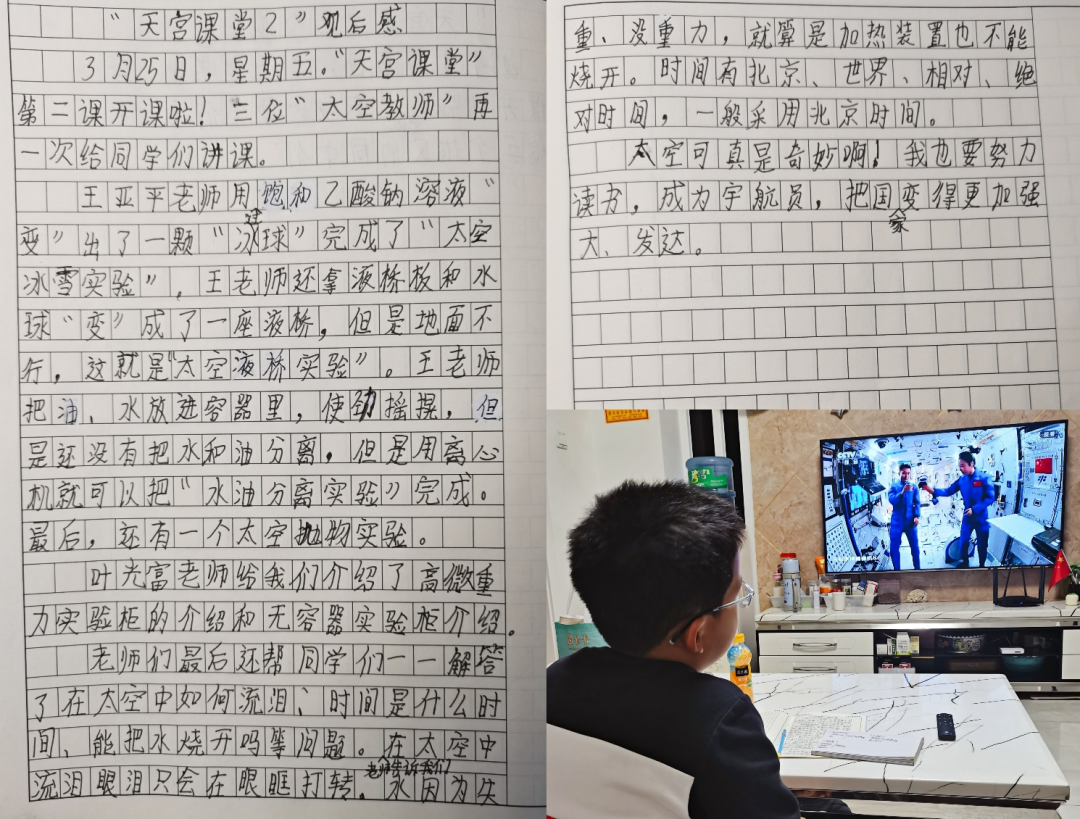 “天宫课堂2”观后感
3月25日，星期五。“天宫课堂”
第二课开课啦！三位“太空教师”再
一次给同学们讲课。
王亚平老师用饱和乙酸钠溶液“
变”出了一颗“冰球”完成了“太空
冰雪实验”，王老师还拿液桥板和水
球“变”成了一座液桥，但是地面不
行，这就是“太空液桥实验”。王老师
把油、水放进容器里，使劲摇摆，但
是还没有把水和油分离，但是用离心
机就可以把“水油分离实验”完成。
最后，还有一个太空抛物实验。
叶光富老师给我们介绍了高微重
力实验柜的介绍和无容器实验柜介绍。
老师们最后还帮同学们一一解答
了在太空中如何流泪、时间是什么时
间、能把水烧开吗等问题。在太空中
流泪眼泪只会在眼眶打转。老师告诉我们水因为失
重、没重力，就算是加热装置也不能
烧开。时间有北京、世界、相对、绝
对时间，一般采用北京时间。
太空可真是奇妙啊！我也要努力
读书，成为宇航员，把国家变得更加强
大、发达。
CCTV